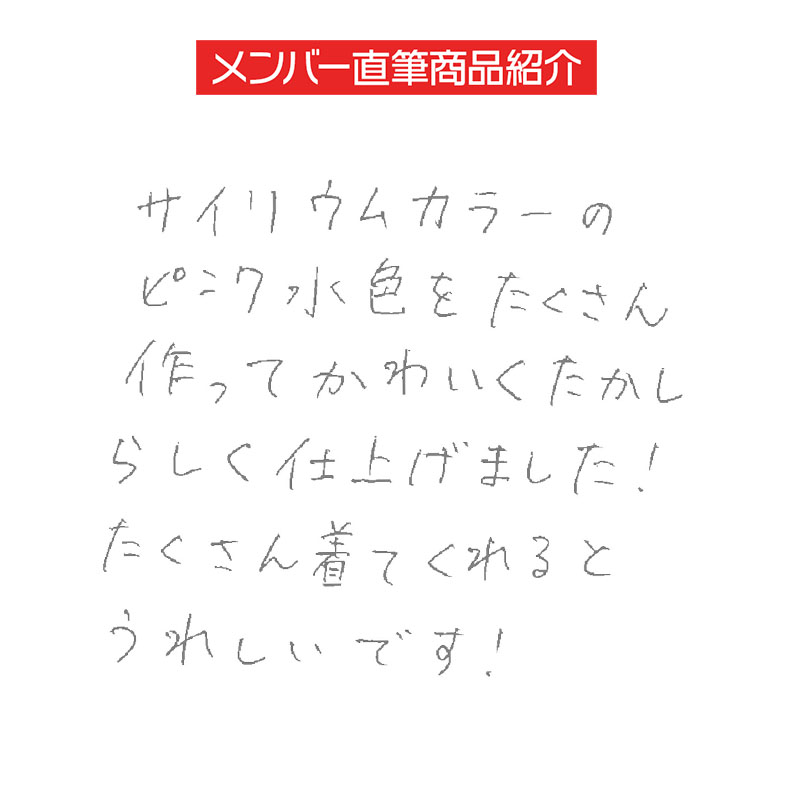 メンバー直筆商品紹介
サイリウムカラーの
ピンク水色をたくさん
作ってかわいくたかし
らしく仕上げました!
たくさん着てくれると
うれしいです!